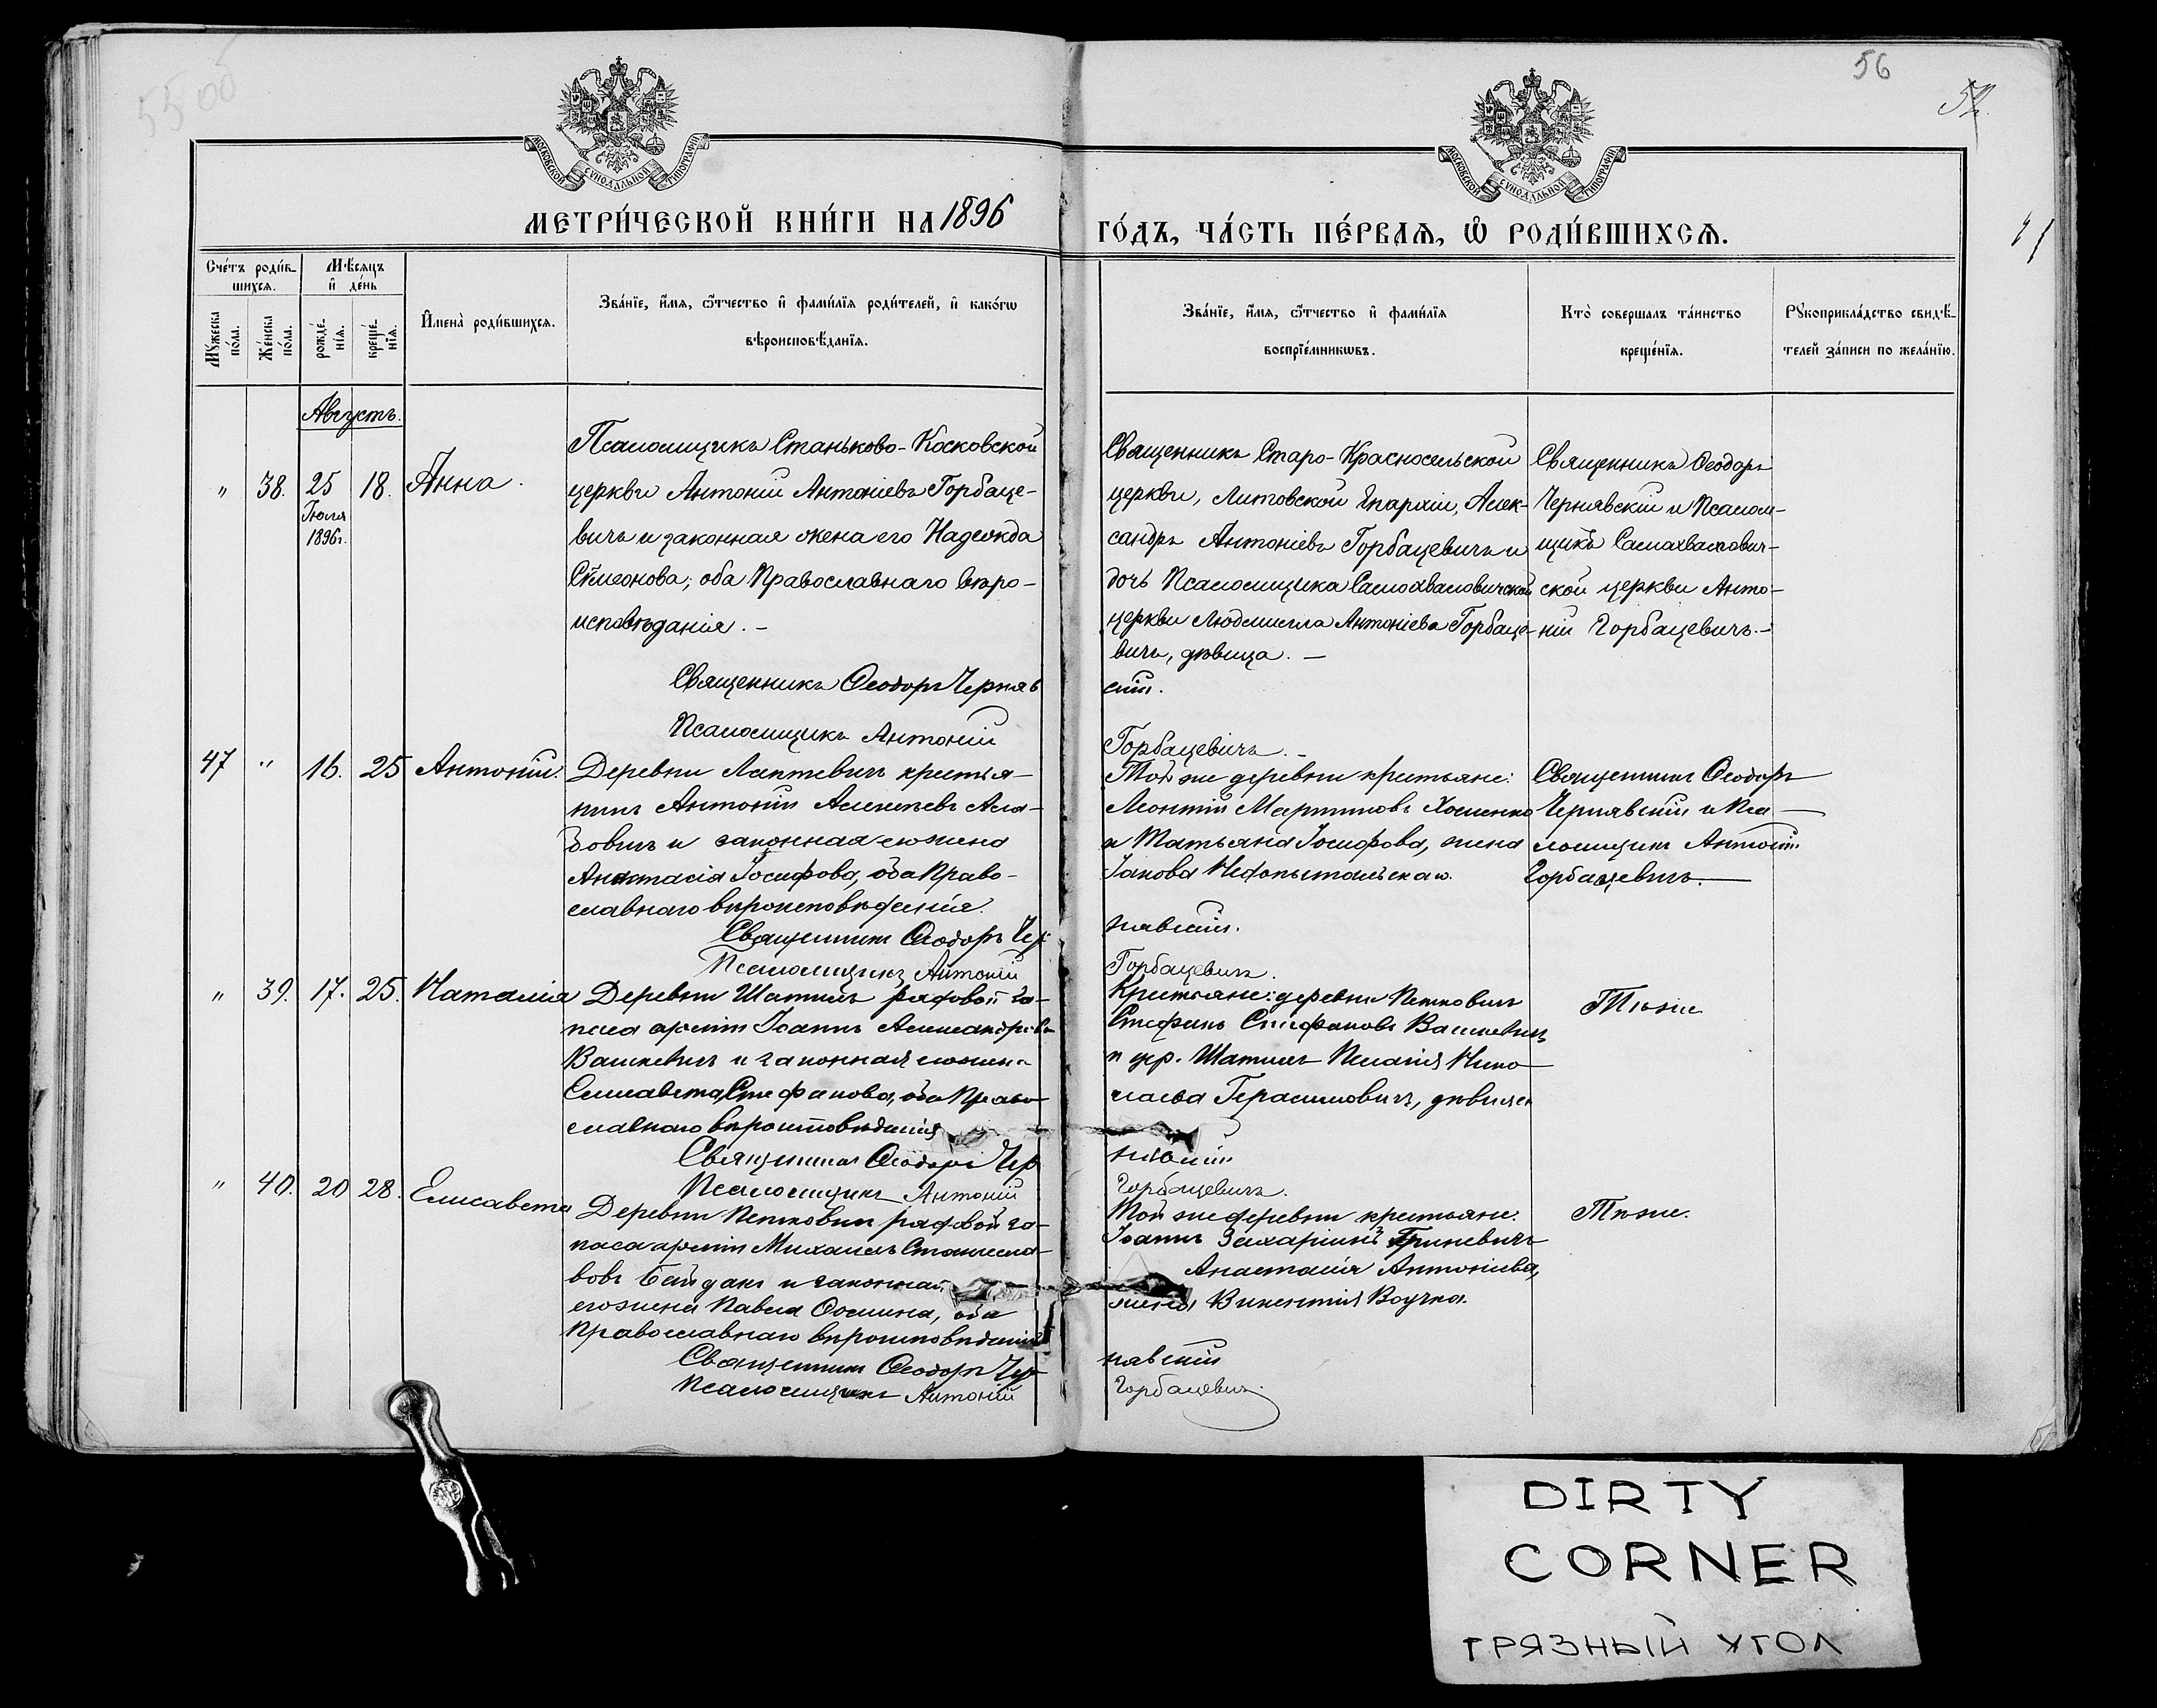 55 об
56
52.
41
МОСКОВСКОЙ СѴНОДАЛЬНОЙ ТИПОГРАФІИ
МОСКОВСКОЙ СѴНОДАЛЬНОЙ ТИПОГРАФІИ
МЕТРИ́ЧЕСКОЙ КНИ́ГИ НА 1896
ГО́ДЪ, ЧА́СТЬ ПЕ́РВАЯ, Ѡ РОДИ́ВШИХСЯ.
Сче́тъ роди́в-
шихся.
Мѣсяцъ
и де́нь
Мꙋжеска по́ла.
Же́нска по́ла.
рожде́-
нїя.
креще́-
нїя.
Имена̀ роди́вшихся.
Зва́нїе, и́мя, ѻ́тчество и фами́лїя роди́телей, и како́гѡ
вѣроисповѣ́данїя.
Зва́нїе, и́мя, ѻ́тчество и фами́лїя
воспрїе́мникѡвъ.
Кто̀ соверша́лъ та́инство
креще́нїя.
Рꙋкоприкла́дство свидѣ́-
телей за́писи по жела́нїю.
Августъ.
" 38. 25 18. Анна.
Іюля
1896г.
Псаломщикъ Станьково-Косковской
церкви Антоній Антоніевъ Горбаце-
вичъ и законная жена его Надежда
Симеонова; оба Православнаго вѣро-
исповѣданія. –
Священникъ Ѳеодоръ Черняв
Псаломщикъ Антоній
Священникъ Старо-Красносельской
церкви, Литовской Епархіи, Алек-
сандръ Антоніевъ Горбацевичъ и
дочь Псаломщика Самохваловичской
церкви Людмилла Антоніева Горбаце-
вичъ, дѣвица. –
скій.
Горбацевичъ. –
Священникъ Ѳеодоръ
Чернявскій и Псалом-
щикъ Самохвалович-
ской церкви Анто-
ній Горбацевичъ. –
47 " 16. 25 Антоній.
Деревни Лаптевичъ крестья-
нинъ Антоній Алексѣевъ Ала-
довичъ и законная его жена
Анастасія Іосифова, оба Право-
славнаго вѣроисповѣданія.
Священникъ Ѳеодоръ Чер
Псаломщикъ Антоній
Той же деревни крестьяне:
Леонтій Мартиновъ Хоменко
и Татьяна Іосифова, жена
Іакова
нявскій.
Горбацевичъ.
Священникъ Ѳеодоръ
Чернявскій и Пса-
ломщикъ Антоній
Горбацевичъ.
" 39. 17. 25. Наталія
Деревни Шатилъ рядовой за-
паса арміи Іоаннъ Александровъ
Вашкевичъ и законная его жена
Елисавета Стефанова, оба Право-
славнаго вѣроисповѣданія
Священникъ Ѳеодоръ Чер
Псаломщикъ Антоній
Крестьяне: деревни Петковичъ
Стефанъ Стефановъ Вашкевичъ
и дер. Шатилъ Пелагія Нико-
лаева Герасимовичъ, дѣвица
нявскій
Горбацевичъ.
Тѣже
" 40. 20 28. Елисавета
Деревни Петковичъ рядовой за-
паса арміи Михаилъ Станисла-
вовъ Байдакъ и законная
его жена Павла Ѳомина, оба
Православнаго вѣроисповѣданія
Священникъ Ѳеодоръ Чер
Псаломщикъ Антоній
Той же деревни крестьяне.
Іоаннъ Захаріинъ Гриневичъ
Анастасія Антоніева,
жена Викентія Воучка.
нявскій
Горбацевичъ.
Тѣже.
DIRTY
CORNER
ГРЯЗНЫЙ УГОЛ